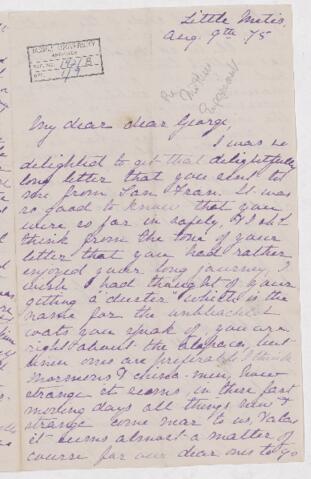 Little Metis
Aug. 9th 75
McGILL UNIVERSITY
ARCHIVES
ACC. NO. 1421 B
REF. 1/9
Re
Mother's
Engagement
My dear dear George,
I was so
delighted to get that delightfully
long letter that you sent to
me from San Fran. It was
so good to know that you
were so far in safety, & I sh'd
think from the tone of your
letter that you had rather
enjoyed your long journey, I
wish I had thought of your
getting a duster which is the
name for the unbleached
coats you speak of, you are
right about the alapaca, but
linen ones are preferable I think
Mormons & china-men, how
strange it seems, in these fast
moving days all things new &
strange come near to us, & alas
it seems almost a matter of
course for our dear ones to go